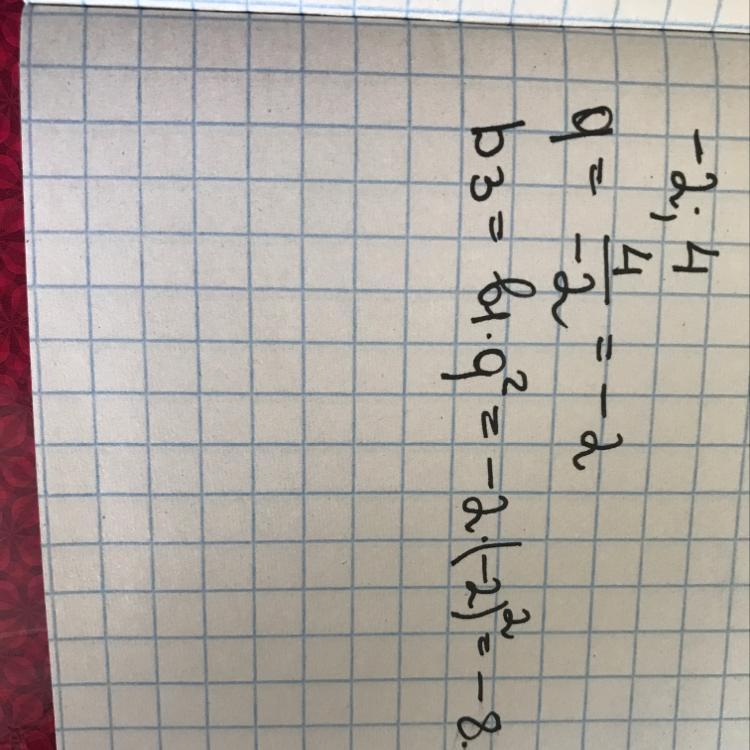 -2; 4
q = 4/-2 = -2
b3 = b1·q² = -2·(-2)² = -8.